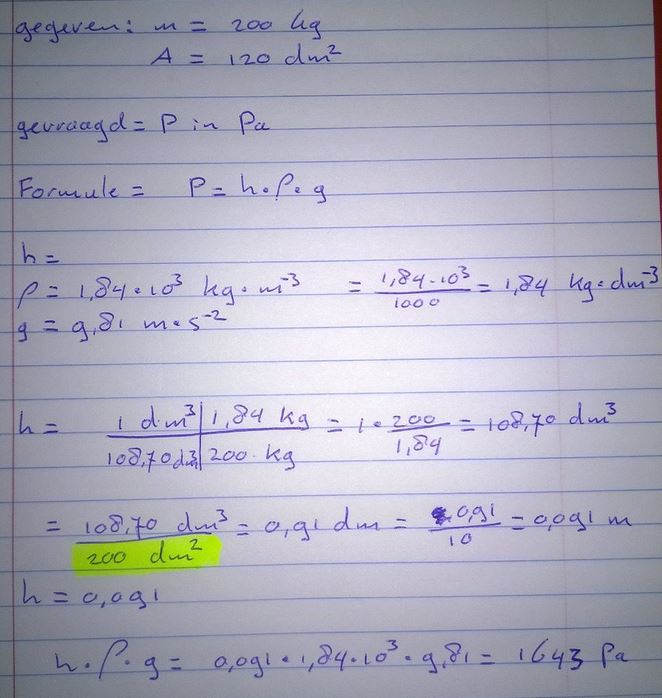 gegeven: m = 200 kg
A = 120 dm²
gevraagd = P in Pa
Formule = P = h·ρ·g
h =
ρ = 1,84·10³ kg·m⁻³ = 1,84·10³/1000 = 1,84 kg·dm⁻³
g = 9,81 m·s⁻²
h = 1 dm³ | 1,84 kg / 108,70 dm³ | 200 kg = 1·200/1,84 = 108,70 dm³
= 108,70 dm³/200 dm² = 0,91 dm = 0,91/10 = 0,091 m
h = 0,091
h·ρ·g = 0,091·1,84·10³·9,81 = 1643 Pa